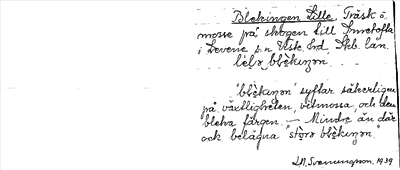 Blekingen Lilla, Träsk o.
mosse på skogen till Smretofta
i Levene s.n Viste hd, Skb. län.
lėlɑ blèkiŋɔn
"blèkiŋɔn" syftar säkerligen
på växtligheten, vitmossa, och den
bleka färgen. — Mindre än där
ock belägna "stọrɑ blèkiŋɔn"
D.A. Svenningson. 1939